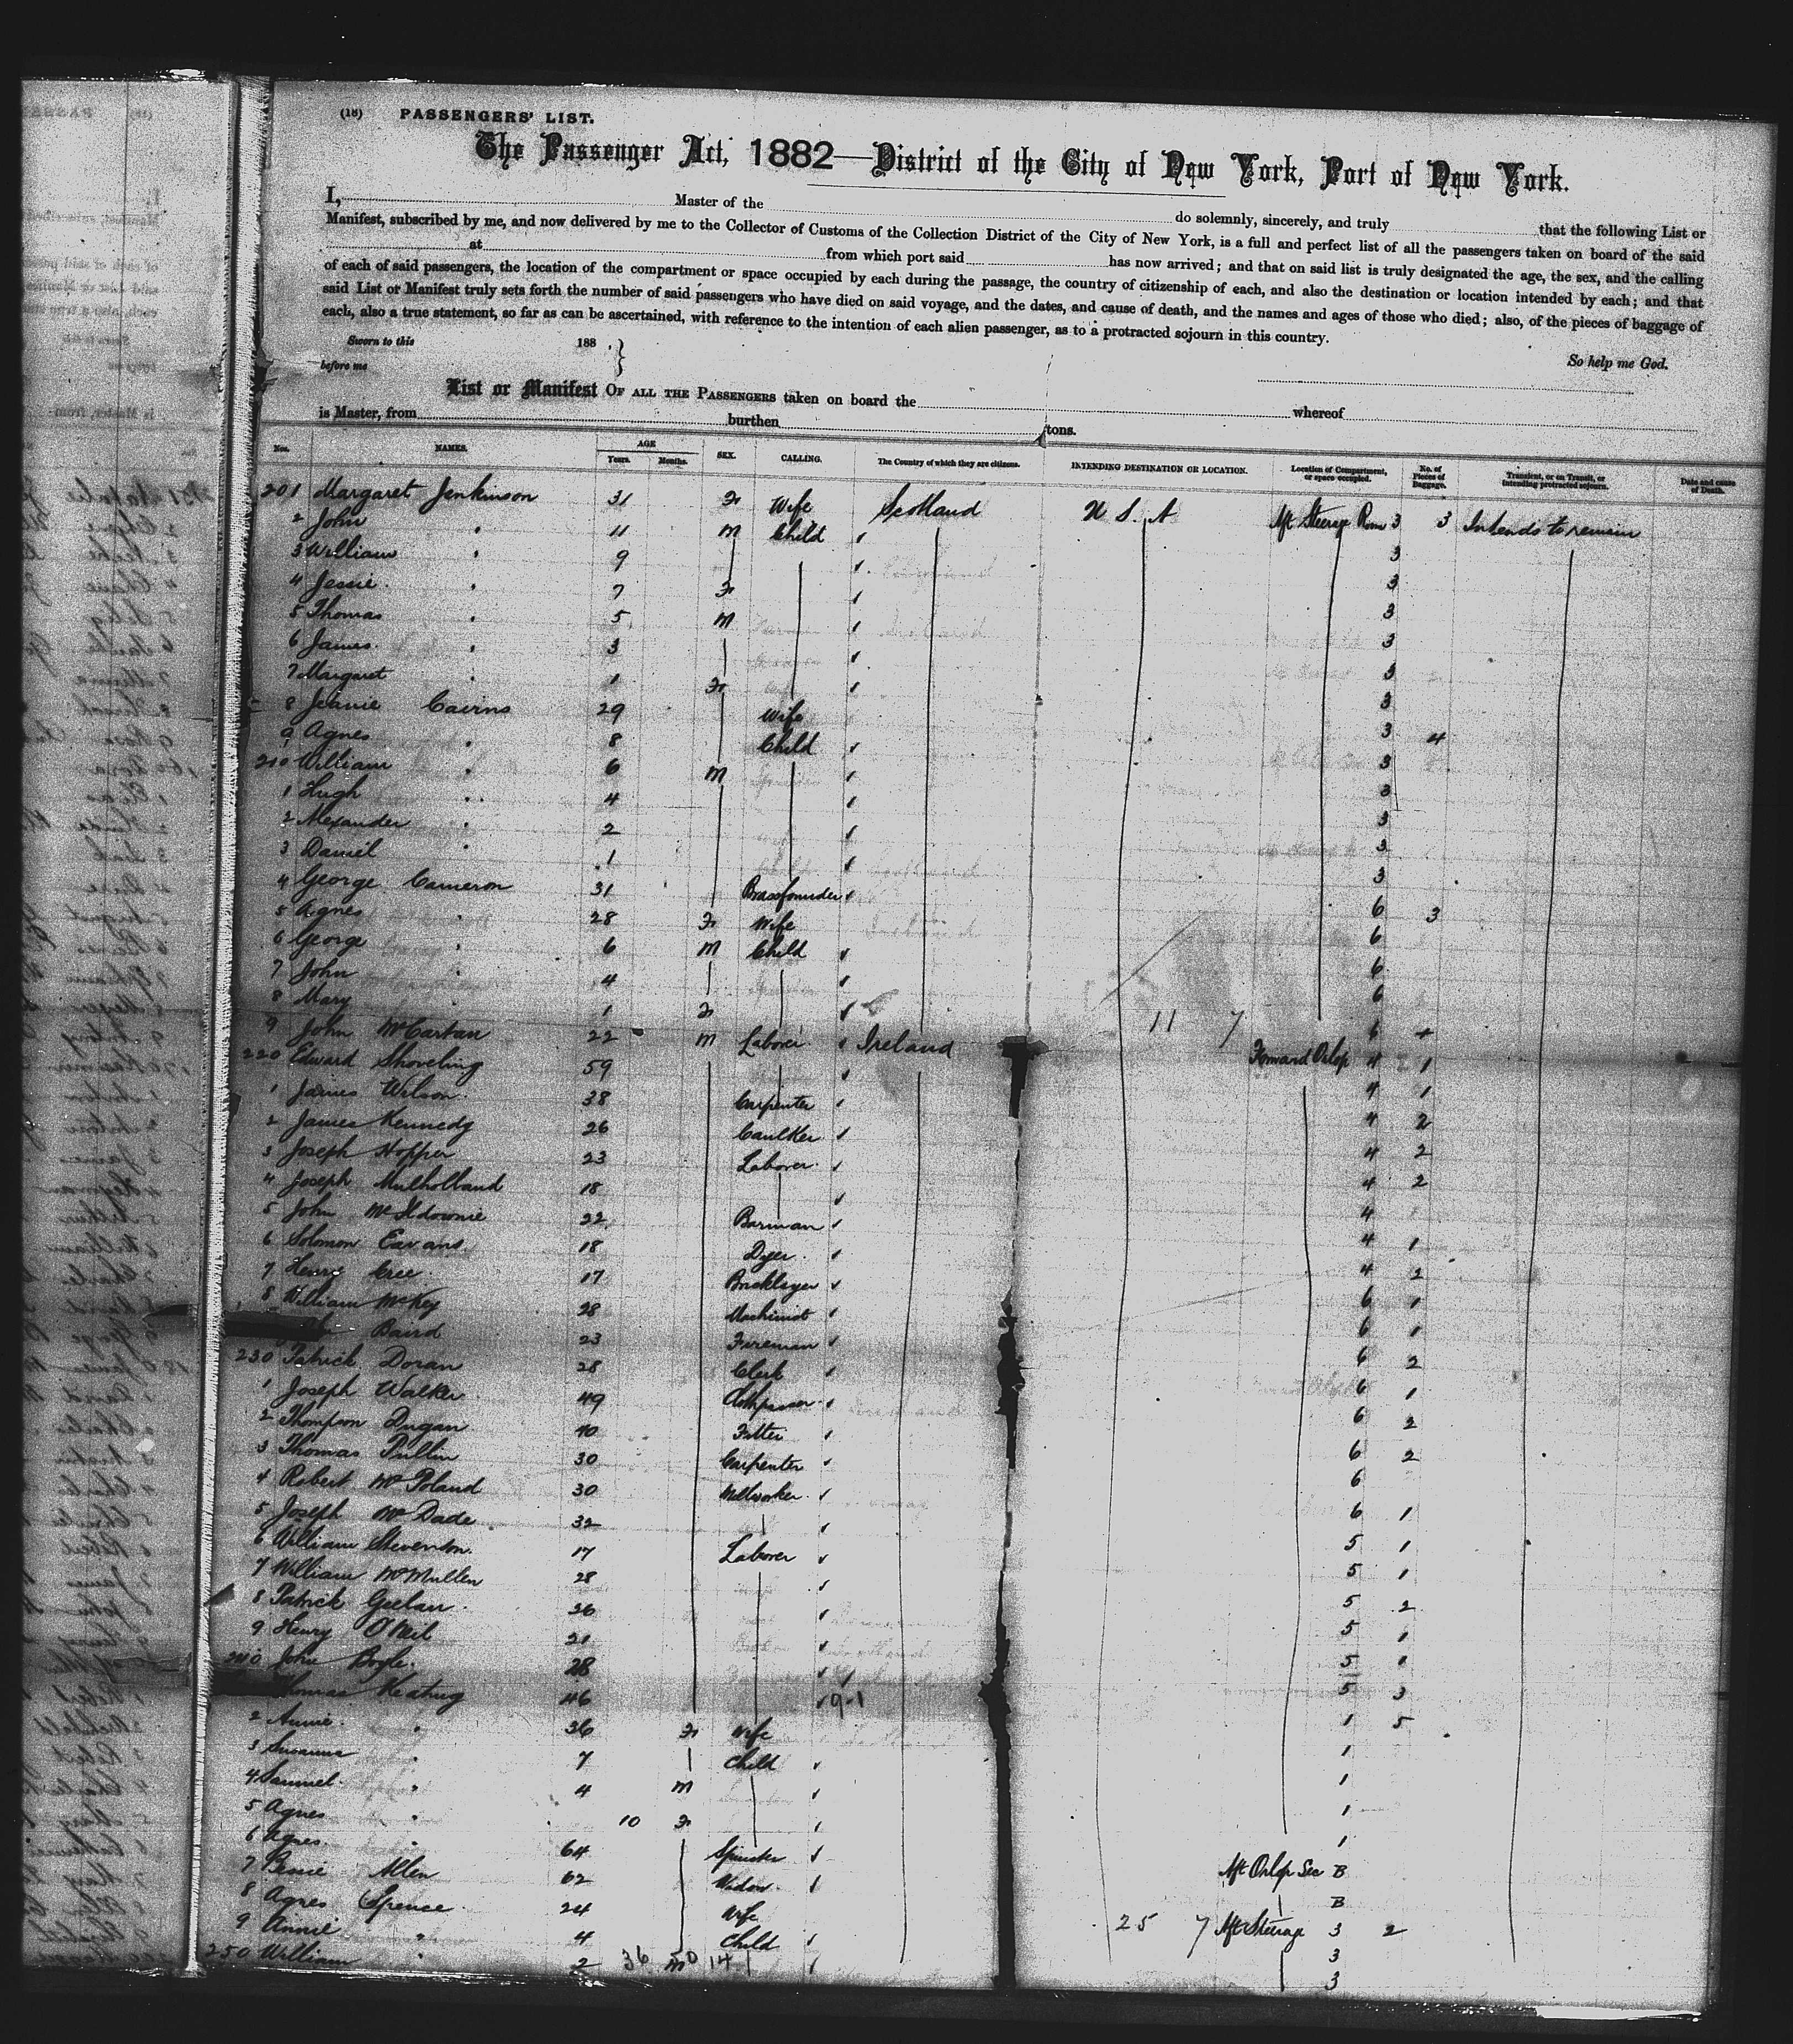 (18) PASSENGERS' LIST.
The Passenger Act, 1882—District of the City of New York, Port of New York.
I, Master of the do solemnly, sincerely, and truly that the following List or
Manifest, subscribed by me, and now delivered by me to the Collector of Customs of the Collection District of the City of New York, is a full and perfect list of all the passengers taken on board of the said
at from which port said has now arrived; and that on said list is truly designated the age, the sex, and the calling
of each of said passengers, the location of the compartment or space occupied by each during the passage, the country of citizenship of each, and also the destination or location intended by each; and that
said List or Manifest truly sets forth the number of said passengers who have died on said voyage, and the dates, and cause of death, and the names and ages of those who died; also, of the pieces of baggage of
each, also a true statement, so far as can be ascertained, with reference to the intention of each alien passenger, as to a protracted sojourn in this country.
Sworn to this 188 . } So help me God.
before me
List or Manifest OF ALL THE PASSENGERS taken on board the whereof
is Master, from burthen tons.
Nos. NAMES. AGE Years. Months. SEX. CALLING. The Country of which they are citizens. INTENDING DESTINATION OR LOCATION. Location of Compartment, or space occupied. No. of Pieces of Baggage. Transient, or in Transit, or intending protracted sojourn. Date and cause of Death.
201 Margaret Jenkinson 31 F Wife Scotland U S. A Aft Steerage Room 3 3 Intends to remain
2 John " 11 M Child 3
3 William " 9 3
4 Jessie " 7 F 3
5 Thomas " 5 M 3
6 James " 3 3
7 Margaret " 1 F 3
8 Jeanie Cairns 29 Wife 3 4
9 Agnes " 8 Child 3
210 William " 6 M 3
1 Hugh " 4 3
2 Alexander " 2 3
3 Daniel " 1 3
4 George Cameron 31 Brassfounder 6 3
5 Agnes " 28 F Wife 6
6 George " 6 M Child 6
7 John " 4 6
8 Mary " 1 F 6
11 7
9 John McCartan 22 M Laborer Ireland Forward Orlop 4 1
220 Edward Shoveling 59 4 1
1 James Wilson 38 Carpenter 4 2
2 James Kennedy 26 Caulker 4 2
3 Joseph Hopper 23 Laborer 4 2
4 Joseph Mulholland 18 4
5 John McIldownie 22 Barman 4 1
6 Solomon Eavans 18 Dyer 4 2
7 Henry Cree 17 Bricklayer 6 1
8 William McKey 28 Machinist 6 1
Baird 23 Fireman 6 2
230 Patrick Doran 28 Clerk 6 1
1 Joseph Walker 49 6 2
2 Thompson Dugan 40 Fitter 6 2
3 Thomas Pullin 30 Carpenter 6
4 Robert McPoland 30 Millworker 6 1
5 Joseph McDade 32 5 1
6 William Stevenson 17 Laborer 5 1
7 William McMullen 28 5 2
8 Patrick Geelan 26 5 1
9 Henry O'Neil 21 5 1
240 John Boyle 28 5 3
Thomas Keating 46 9-1 1 5
2 Annie " 36 F Wife 1
3 Susanna " 7 Child 1
4 Samuel " 4 M 1
5 Agnes " 10 F 1
6 Agnes " 64 Spinster Aft Orlop Sec B
7 Allen 62 Widow B
8 Agnes Spence 24 Wife 25 7 Aft Steerage 3 2
9 Annie " 4 Child 3
250 William " 2 36 M 50 14 3